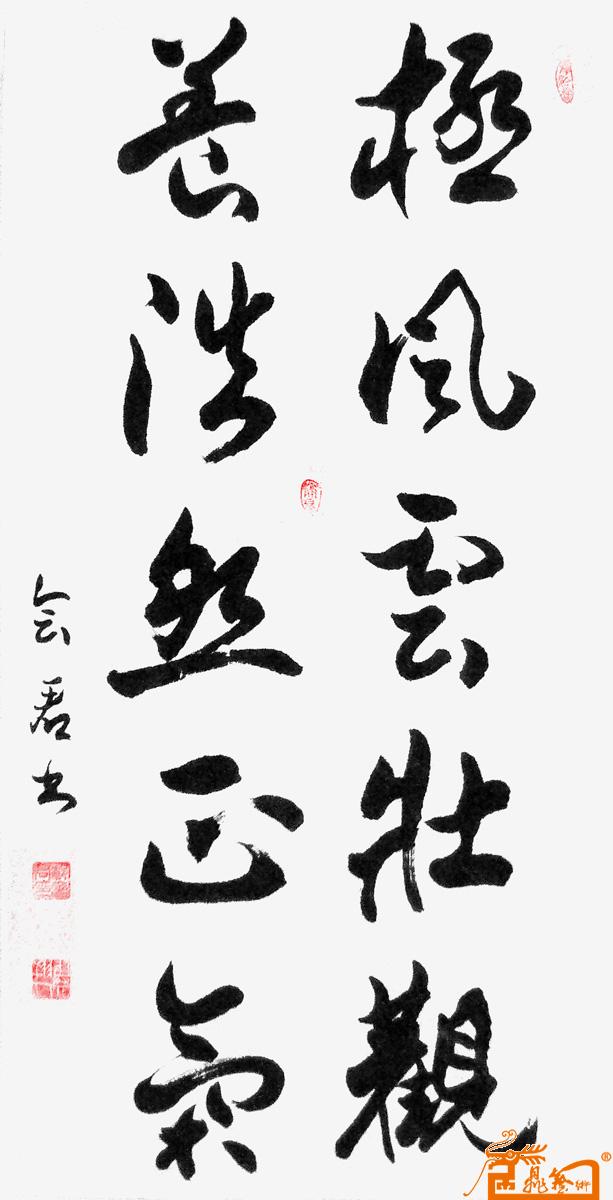 極風雲壯觀
養浩然正氣
会君书